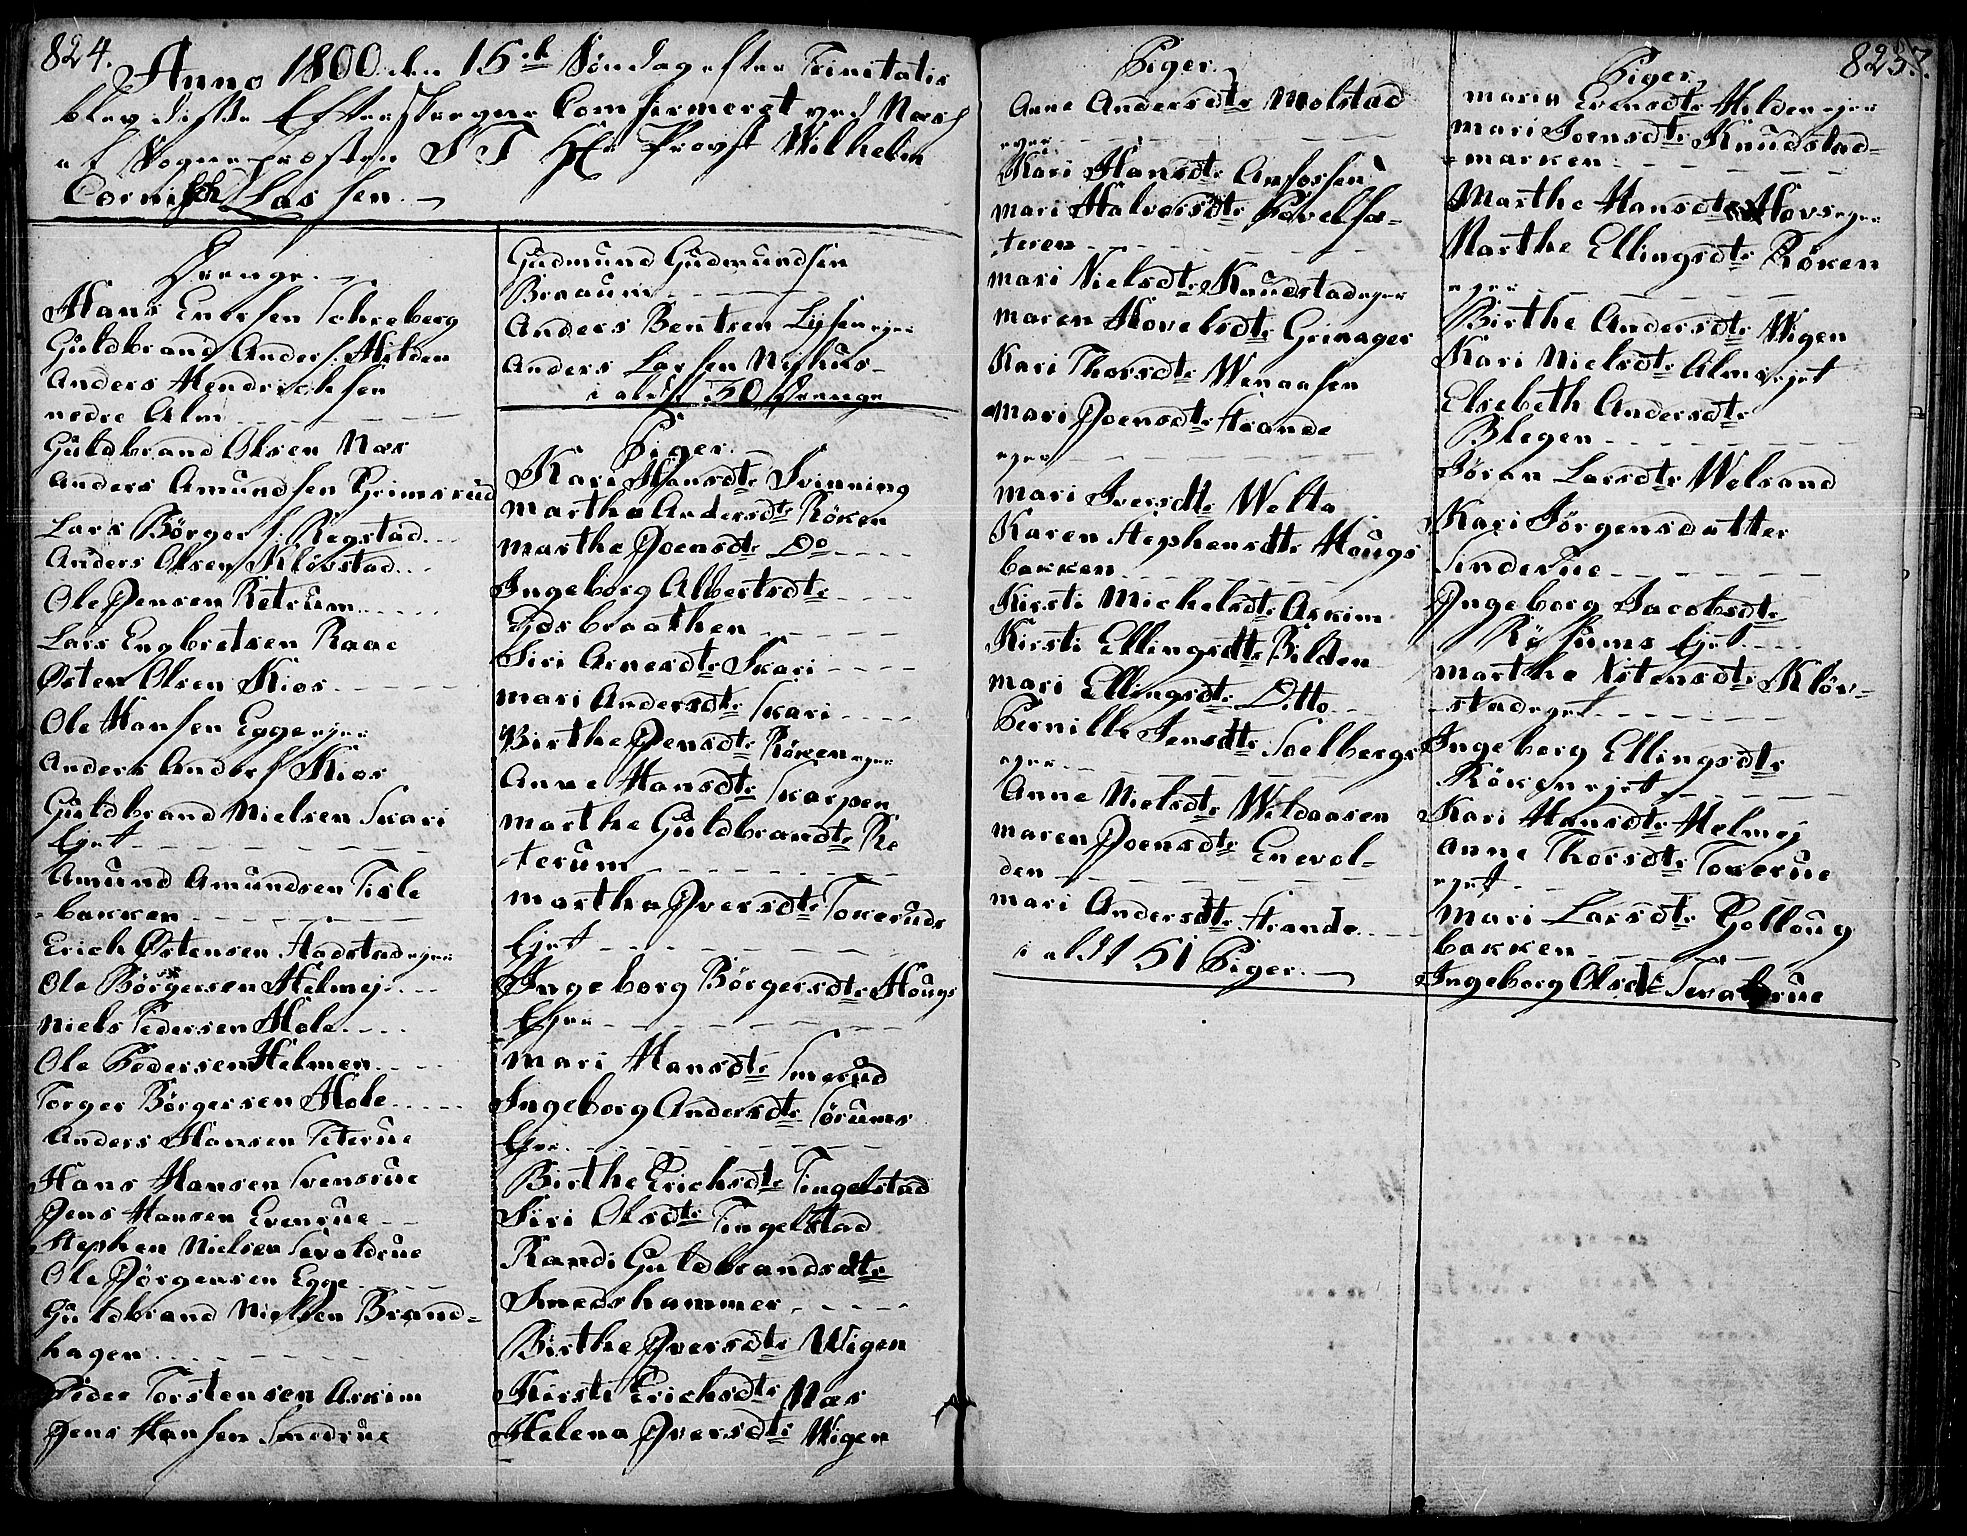 824.
Anno 1800 den 15de Søndag efter Trinitatis
blev disse Efterskrevne Comfirmeret ved Næss
af Sognepræsten S T Hr Provst Wilhelm
Cornisch Lassen.
Drenge.
Hans Enersen Schreberg
Guldbrand Anders. Hilden
Anders Hendrichsen
nedre Alm
Guldbrand Olsen Næs
Anders Amundsen Grimsrud
Lars Börgers. Regstad
Anders Olsen Klövstad
Ole Jensen Retrum
Lars Engbretsen Raae
Østen Olsen Kios
Ole Hansen Egge ejer
Anders Anders. Kios
Guldbrand Nielsen Skari
Ejet
Amund Amundsen Tisle
bakken
Erich Østensen Stadstad ejer
Ole Børgersen Helmej
Niels Pedersen Hole
Ole Pedersen Helmen
Torger Börgersen Hole
Anders Hansen Teterue
Hans Hansen Svensrue
Jens Hansen Evenrue
Stephen Nielsen Sevaldrue
Ole Jörgensen Egge
Guldbrand Nielsen Brand-
hagen
Peder Torstensen Askim
Jens Hansen Smedrue
Gudmund Gudmundsen
Braaum
Anders Bentsen Lysen ejer
Anders Larsen Nyhus
i alt 30 Drenge
Piger.
Kari Hansdtr Svinning
Martha Andersdtr Röken
Marthe Joensdtr Do
Ingeborg Albertsdtr
Gdsbraathen
Siri Arnesdtr Skari
Mari Andersdtr Skari
Birthe Jensdtr Röken ejer
Anne Hansdtr Skarpen
Marthe Guldbrandtr Re
terum
Martha Iversdtr Tokeruds
Ejet
Ingeborg Börgersdtr Hougs
Ejer
Mari Hansdtr Smerud
Ingeborg Andersdtr Sörums
Ejer
Birthe Erichsdtr Tingelstad
Siri Olsdtr Tingelstad
Randi Guldbrandsdtr
Smedshammer
Birthe Iversdtr Wigen
Kirsti Erichsdtr Næs
Helena Iversdtr Wigen
Piger.
Anne Andersdtr Molstad
ejer
Kari Hansdtr Anfossen
Mari Halversdtr Povelsæ-
teren
Mari Nielsdtr Knudstad ejer
Maren Hovelsdtr Grinager
Kari Thorsdtr Wenaasen
Mari Joensdtr Strande
ejer
Mari Iversdtr Welta
Karen Stephensdtr Hougs
bakken
Kirsti Michelsdtr Askim
Kirsti Ellingsdtr Bilden
Mari Ellingsdtr Ditto
Pernille Jensdtr Soelbergs
ejer
Anne Nielsdtr Wildaasen
Maren Joensdtr Enevol-
den
Mari Andersdtr Strande
i alt 51 Piger.
825.
Piger
Maria Evensdtr Hilden ejer
Mari Joensdtr Knudstad-
marken
Marthe Hansdtr Hovs ejer
Marthe Ellingsdtr Röken
ejer
Birthe Andersdtr Wigen
Kari Nielsdtr Alms ejet
Elsebeth Andersdtr
Blegen
Jöran Larsdtr Welsand
Kari Jörgensdatter
Sinderue
Ingeborg Jacobsdtr
Röhums Ejet
Marthe Østensdtr Klöv-
stad ejet
Ingeborg Ellingsdtr
Röken ejet
Kari Hansdtr Helmej
Anne Thorsdtr Tokerue
ejet
Mari Larsdtr Golloug
bakken
Ingeborg Olsdtr Sevalrue